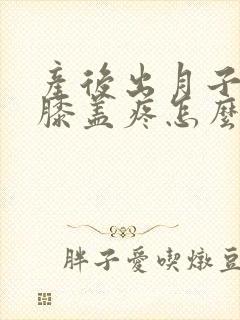 產後出月子
膝蓋疼怎麼
胖子愛喫燉豆